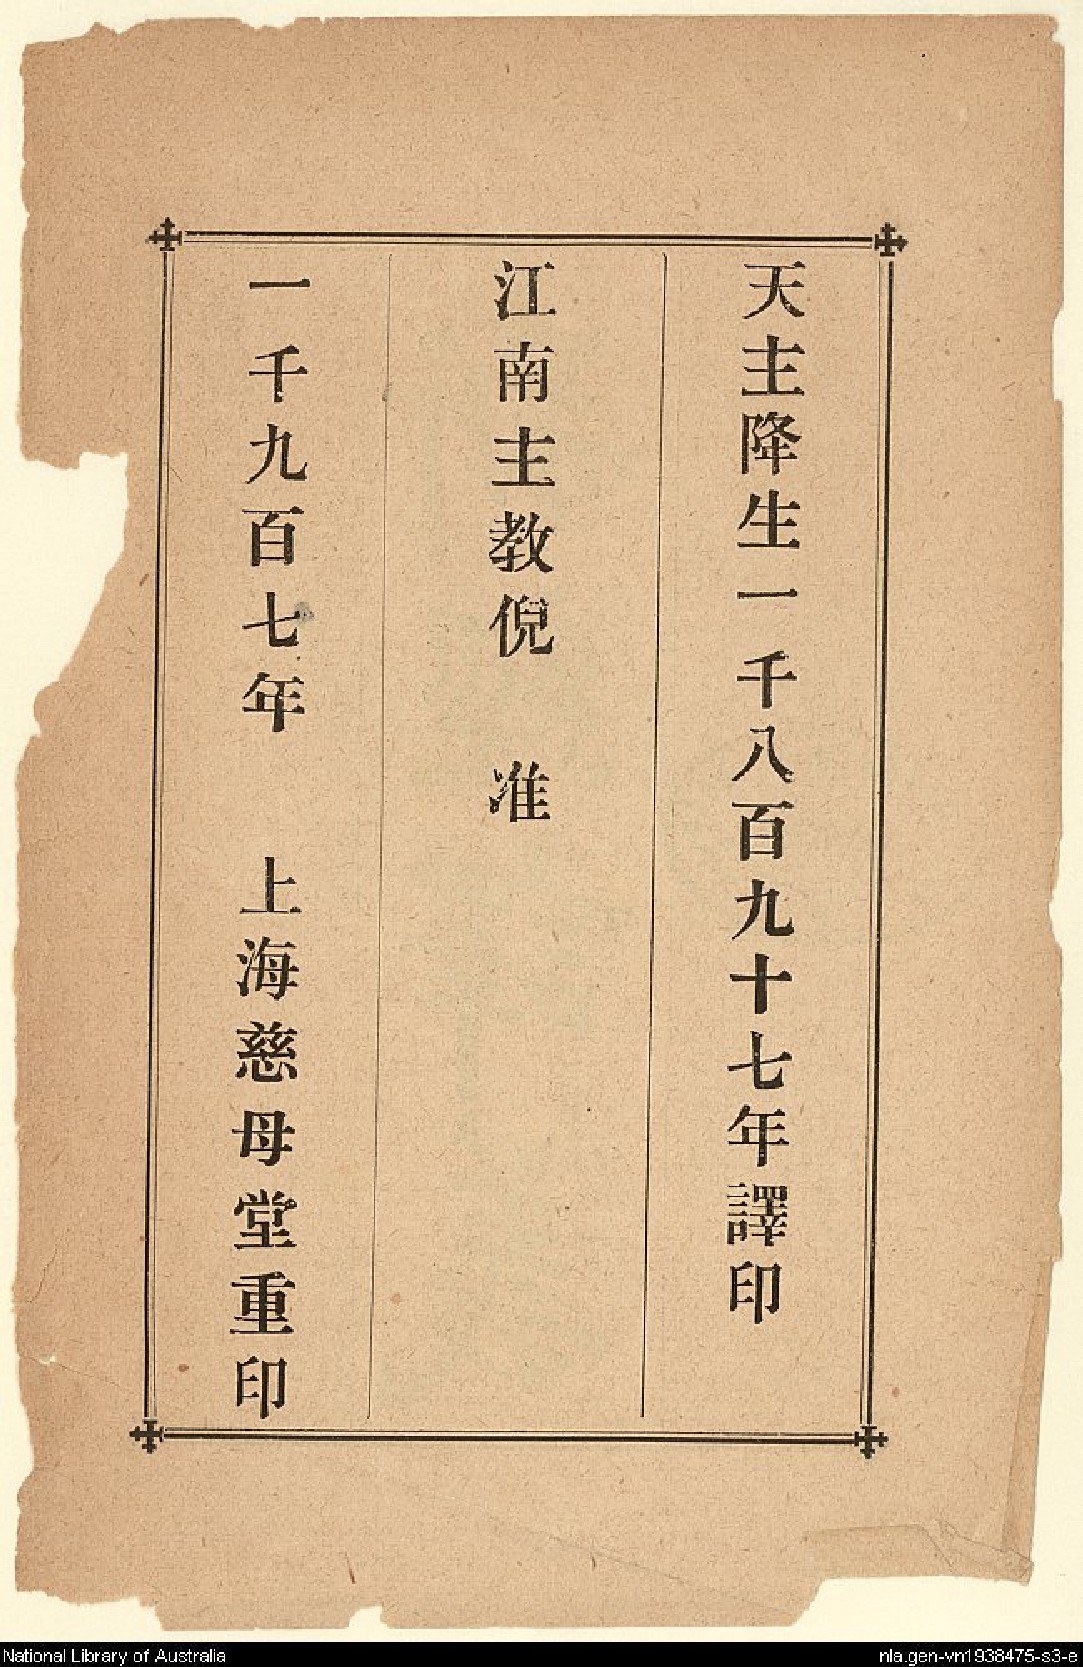 天主降生一千八百九十七年譯印
江南主教倪 准
一千九百七年 上海慈母堂重印
National Library of Australia
nla.gen-vn1938475-s3-e